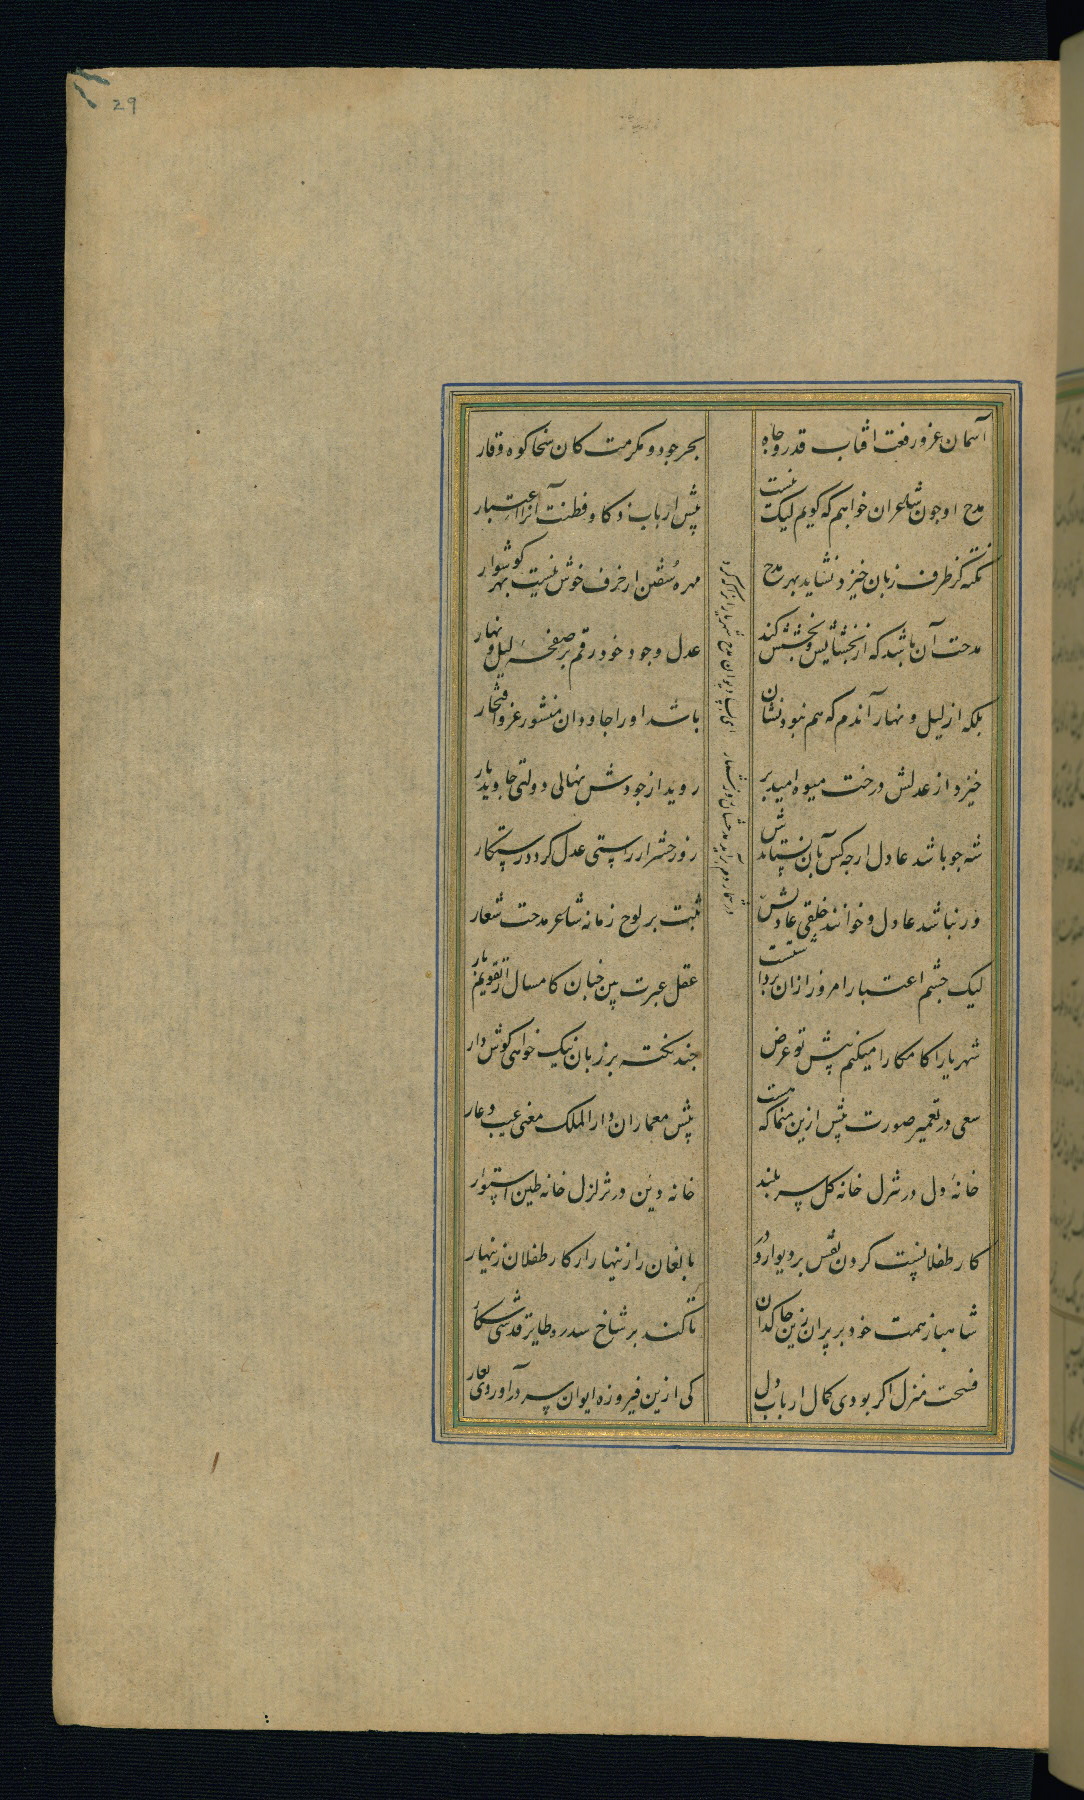 29
آسمان عز و رفعت افتاب قدر و جاه
بحر جود و مکرمت کان سخا کوه وقار
مدح او چون شاعران خواهم که کویم لیک نیست
پیش ارباب ذکا و فطنت آنرا اعتبار
نکته کز طرف زبان خیزد نشاید بهر مدح
مهره سفتن از خزف خوش نیست بهر کوشوار
مدحت آن باشد که از بخشایش و بخشش کند
عدل و جود خود رقم بر صفحهٔ لیل و نهار
بلکه از لیل و نهار آندم که هم نبود نشان
باشد او را جاودان منشور عز و افتخار
خیزد از عدلش درخت میوه امید بر
روید از جودش نهالی دولتی جاوید بار
شه چو باشد عادل ار چه کس بآن نستایدش
روز حشر از راستی عدل کردد رستکار
ور نباشد عادل و خوانند خلقی عادلش
ثبت بر لوح زمانه شاعر مدحت شعار
لیک چشم اعتبار امروز ازان بر دا شتست
عقل عبرت بین چنان کامسال از تقویم پار
شهریارا کامکارا میکنم پیش تو عرض
چند نکته بر زبان نیک خواهی کوش دار
سعی در تعمیر صورت بیش ازین منما که هست
پیش معماران دار الملک معنی عیب و عار
خانهٔ دل در تنزل خانه کل سر بلند
خانه دین در تزلزل خانه طین استوار
کار طفلانیست کردن نقش بر دیوار و در
بالغان را زینهار از کار طفلان زینهار
شاهباز همت خود بر پران زین خاکدان
تا کند بر شاخ سدره طایر قدسی شکار
فسحت منزل اکر بودی کمال ارباب دل
کی ازین فیروزه ایوان سر در آوردی بعار